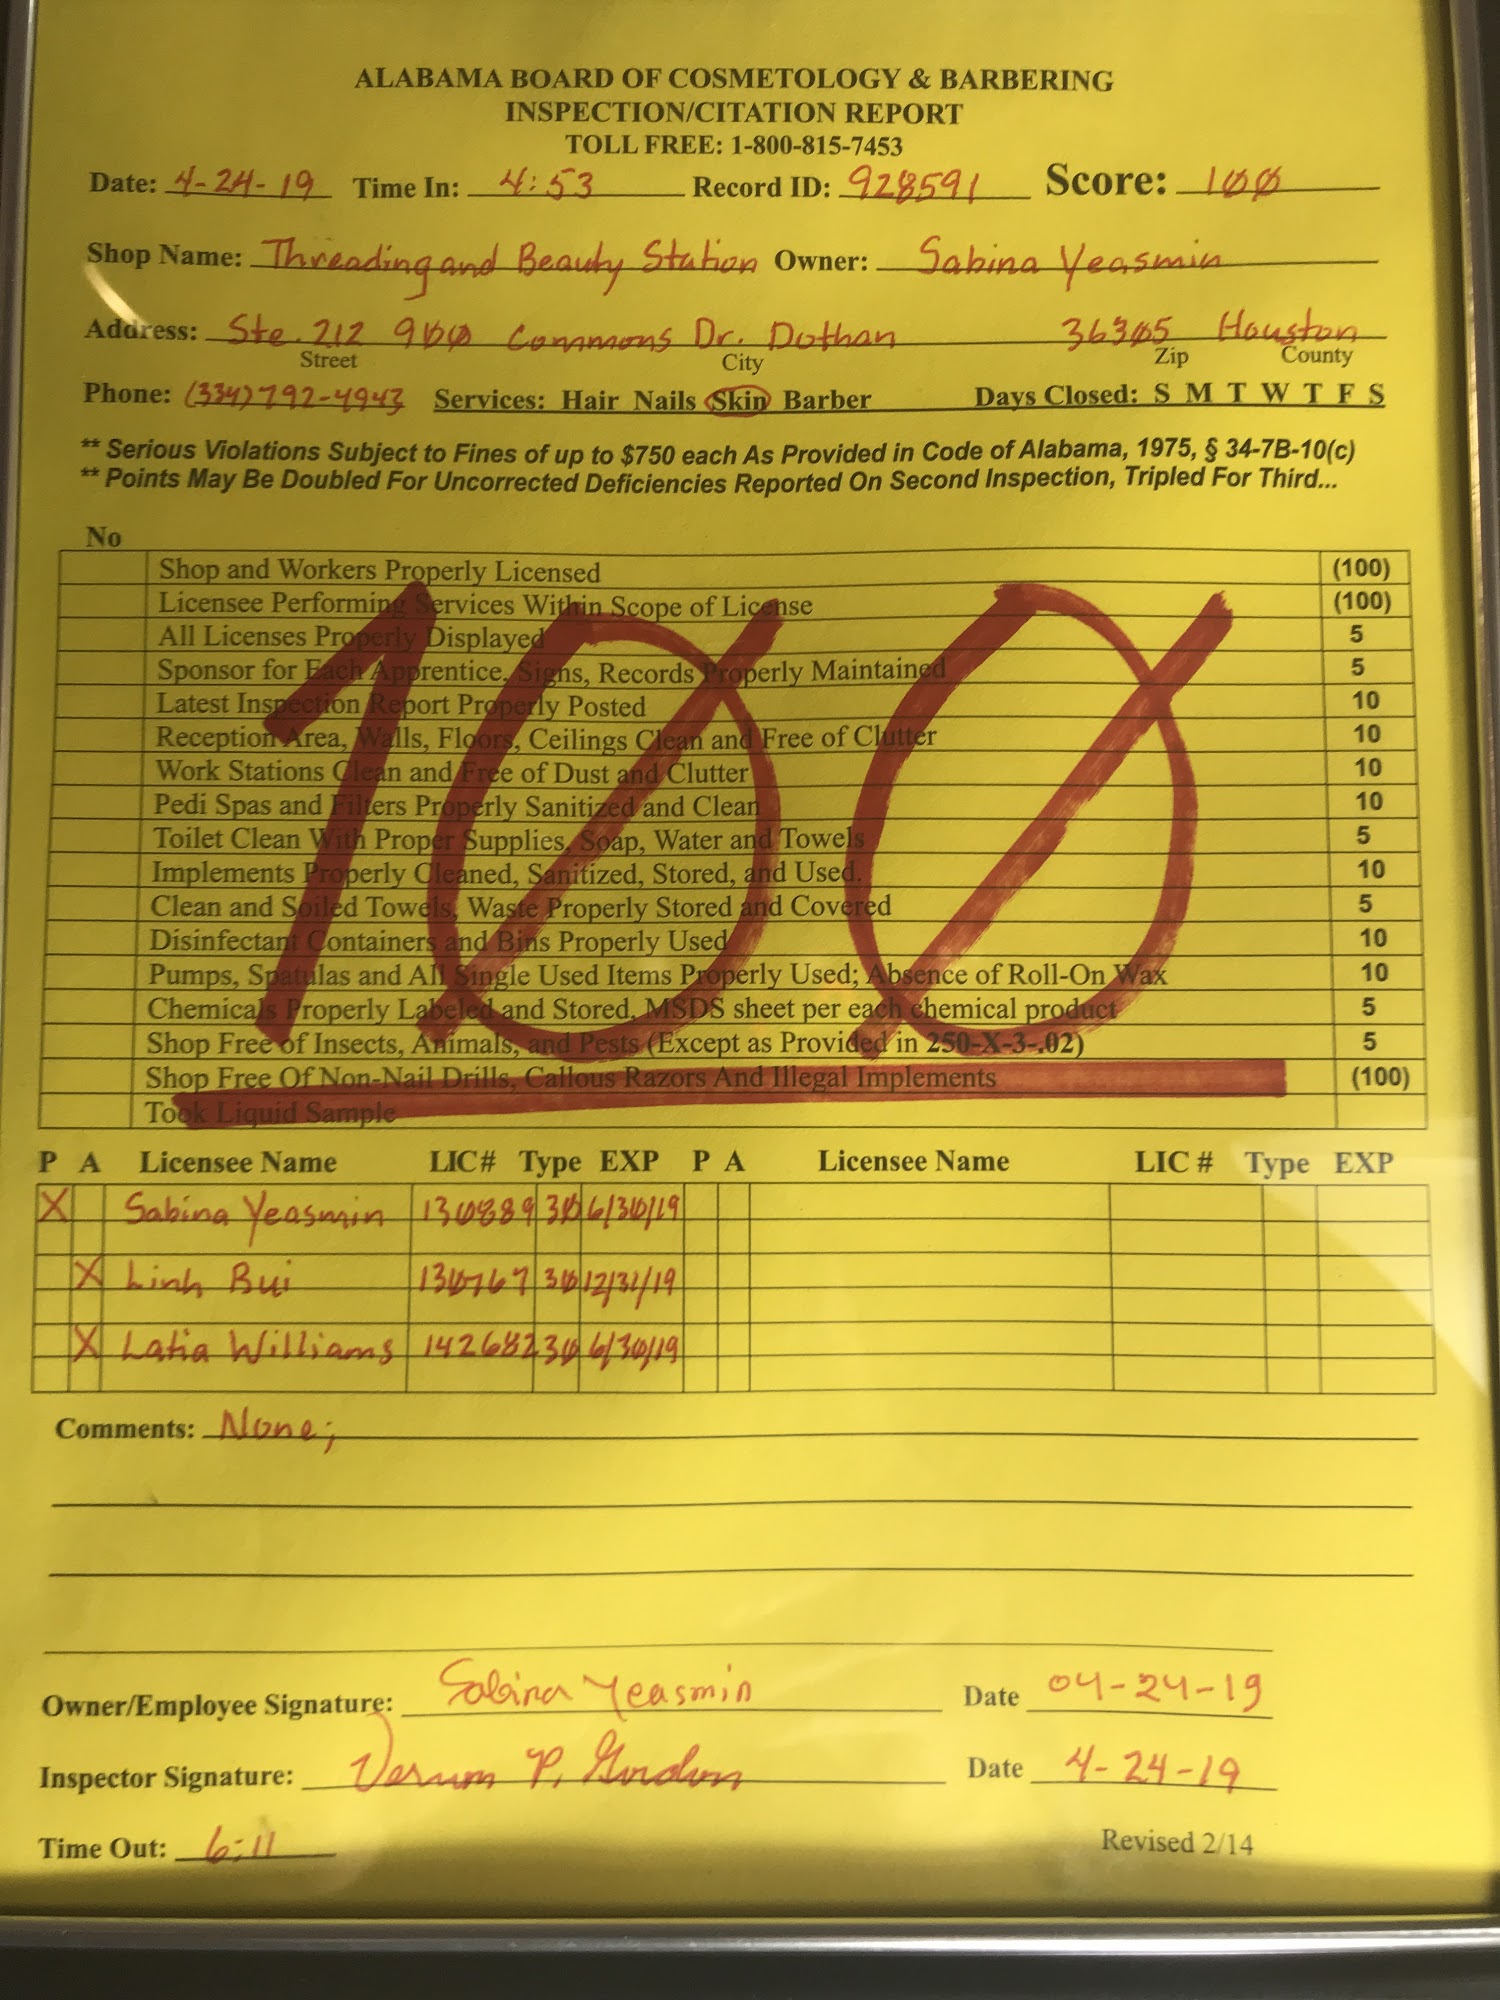 ALABAMA BOARD OF COSMETOLOGY & BARBERING
INSPECTION/CITATION REPORT
TOLL FREE: 1-800-815-7453
Date: 4-24-19 Time In: 4:53 Record ID: 928591 Score: 100
Shop Name: Threading and Beauty Station Owner: Sabina Yeasmin
Address: Ste. 212 900 Commons Dr. Dothan 36305 Houston
Street City Zip County
Phone: (334)792-4943 Services: Hair Nails Skin Barber Days Closed: S M T W T F S
** Serious Violations Subject to Fines of up to $750 each As Provided in Code of Alabama, 1975, § 34-7B-10(c)
** Points May Be Doubled For Uncorrected Deficiencies Reported On Second Inspection, Tripled For Third...
No
Shop and Workers Properly Licensed (100)
Licensee Performing Services Within Scope of License (100)
All Licenses Properly Displayed 5
Sponsor for Each Apprentice, Signs, Records Properly Maintained 5
Latest Inspection Report Properly Posted 10
Reception Area, Walls, Floors, Ceilings Clean and Free of Clutter 10
Work Stations Clean and Free of Dust and Clutter 10
Pedi Spas and Filters Properly Sanitized and Clean 10
Toilet Clean With Proper Supplies, Soap, Water and Towels 5
Implements Properly Cleaned, Sanitized, Stored, and Used. 10
Clean and Soiled Towels, Waste Properly Stored and Covered 5
Disinfectant Containers and Bins Properly Used 10
Pumps, Spatulas and All Single Used Items Properly Used; Absence of Roll-On Wax 10
Chemicals Properly Labeled and Stored, MSDS sheet per each chemical product 5
Shop Free of Insects, Animals, and Pests (Except as Provided in 250-X-3-.02) 5
Shop Free Of Non-Nail Drills, Callous Razors And Illegal Implements (100)
Took Liquid Sample
100
P A Licensee Name LIC# Type EXP P A Licensee Name LIC # Type EXP
X Sabina Yeasmin 130889 30 6/30/19
X Linh Bui 130767 30 12/31/19
X Latia Williams 142682 30 6/30/19
Comments: None;
Owner/Employee Signature: Sabina Yeasmin Date 04-24-19
Inspector Signature: Vernon P. Gordon Date 4-24-19
Time Out: 6:11 Revised 2/14